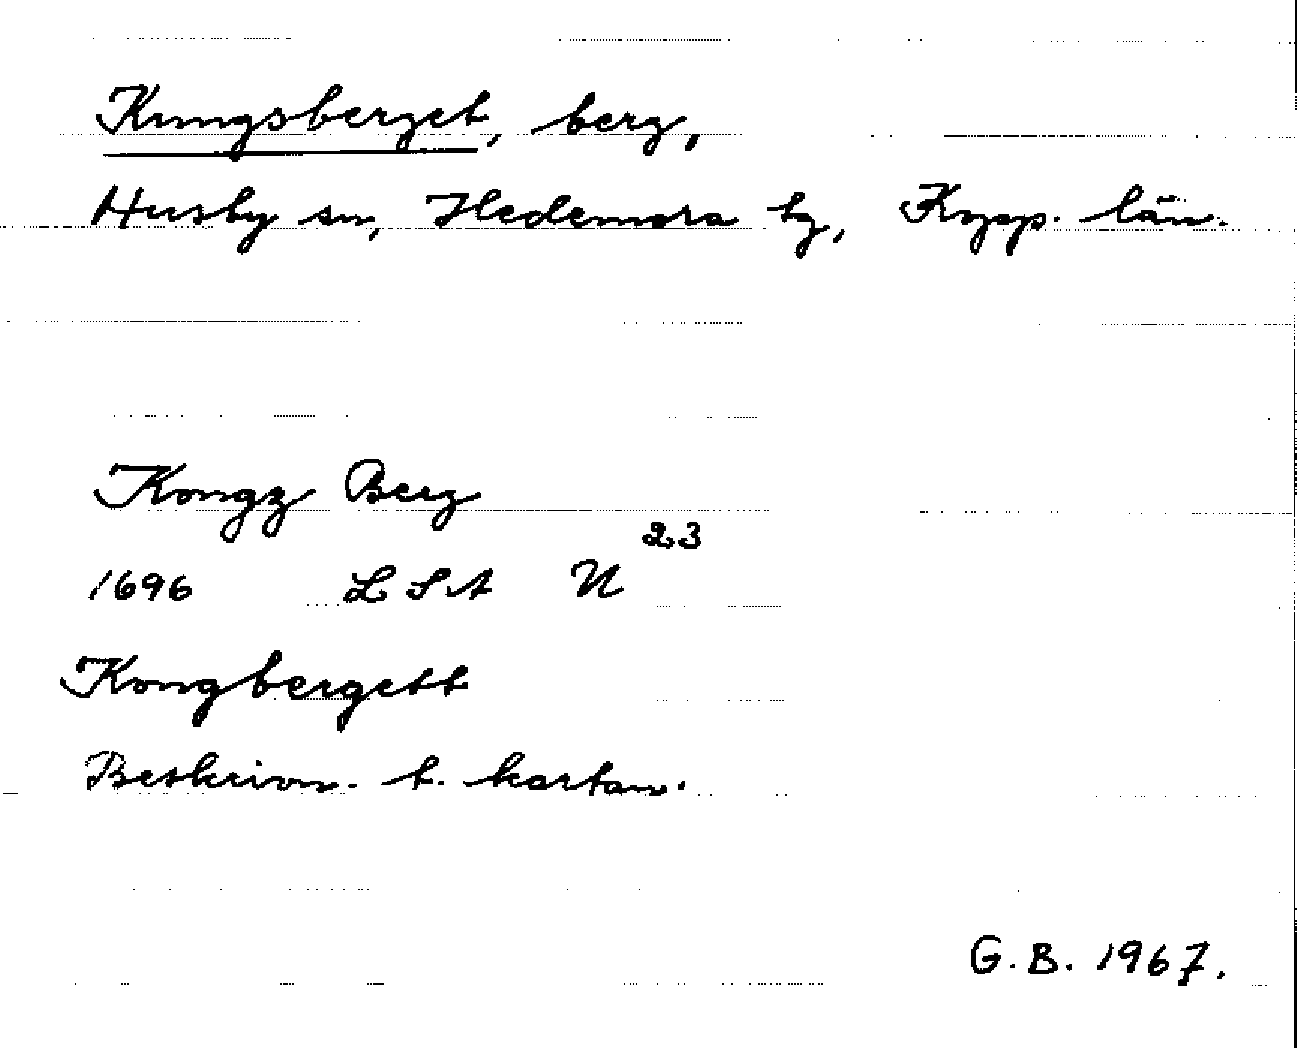 Kungsberget, berg,
Husby sn, Hedemora tg, Kopp. län.
Kongz Berg
1696 L St A U 23
Kongbergett
Beskrivn. t. kartan.
G.B. 1967.